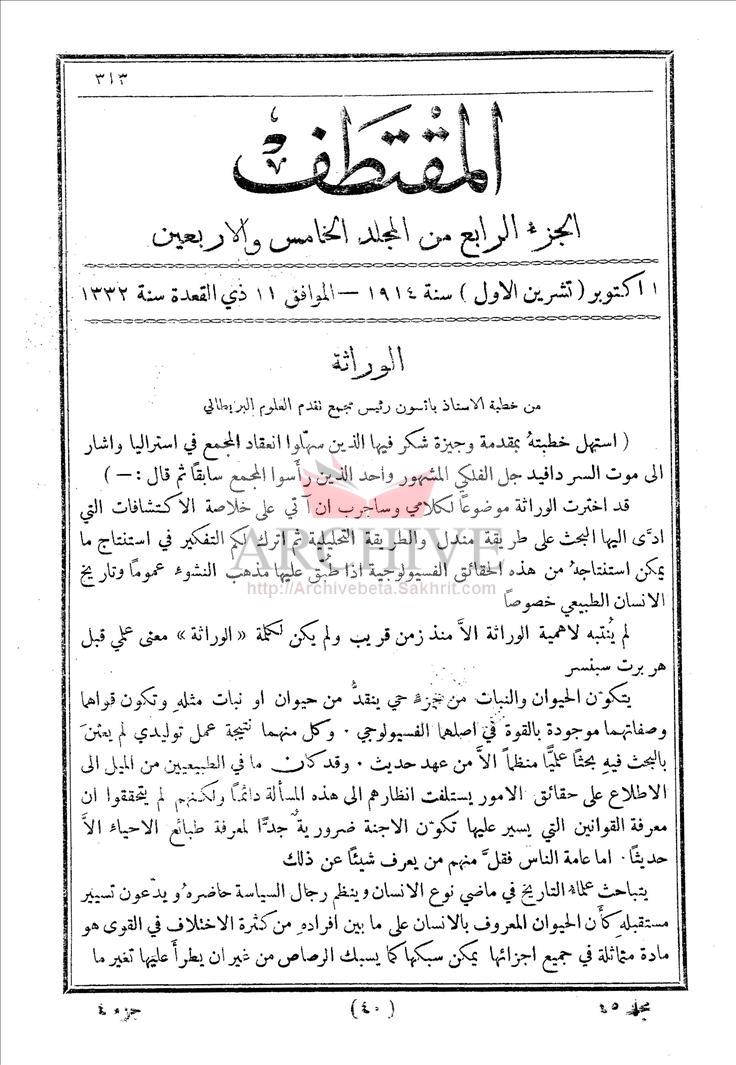 ٣١٣
المقتطف
الجزء الرابع من المجلد الخامس والاربعين
١ اكتوبر (تشرين الاول) سنة ١٩١٤ — الموافق ١١ ذي القعدة سنة ١٣٣٢
الوراثة
من خطبة الاستاذ باتسون رئيس مجمع نقدم العلوم البريطاني
( استهل خطبتهُ بمقدمة وجيزة شكر فيها الذين سهلوا انعقاد المجمع في استراليا واشار
الى موت السر دافيد جل الفلكي المشهور واحد الذين رأسوا المجمع سابقاً ثم قال : — )
قد اخترت الوراثة موضوعاً لكلامي وساجرب ان آتي على خلاصة الاكتشافات التي
ادَّى اليها البحث على طريقة مندل والطريقة التحليلية ثم اترك لكم التفكير في استنتاج ما
يمكن استنتاجهُ من هذه الحقائق الفسيولوجية اذا طُبق عليها مذهب النشوء عموماً وتاريخ
الانسان الطبيعي خصوصاً
لم يُنتبه لاهمية الوراثة الاَّ منذ زمن قريب ولم يكن لكلمة «الوراثة» معنى علمي قبل
هربرت سبنسر
يتكوَّن الحيوان والنبات من جزء حي ينقدُّ من حيوان او نبات مثلهِ وتكون قواهما
وصفاتهما موجودة بالقوة في اصلهما الفسيولوجي . وكل منهما نتيجة عمل توليدي لم يعتنَ
بالبحث فيهِ بحثاً علميًّا منظماً الاَّ من عهد حديث . وقد كان ما في الطبيعيين من الميل الى
الاطلاع على حقائق الامور يستلفت انظارهم الى هذه المسألة دائماً ولكنهم لم يتحققوا ان
معرفة القوانين التي يسير عليها تكوّن الاجنة ضرورية جدًّا لمعرفة طبائع الاحياء الاَّ
حديثاً . اما عامة الناس فقلَّ منهم من يعرف شيئاً عن ذلك
يتباحث علماءُ التاريخ في ماضي نوع الانسان وينظم رجال السياسة حاضرهُ ويدّعون تسيير
مستقبلهِ كأن الحيوان المعروف بالانسان على ما بين افراده من كثرة الاختلاف في القوى هو
مادة متماثلة في جميع اجزائها يمكن سبكها كما يسبك الرصاص من غير ان يطرأ عليها تغير ما
مجلد ٤٥
(٤٠)
جزء ٤
ARCHIVE
http://Archivebeta.Sakhrit.com